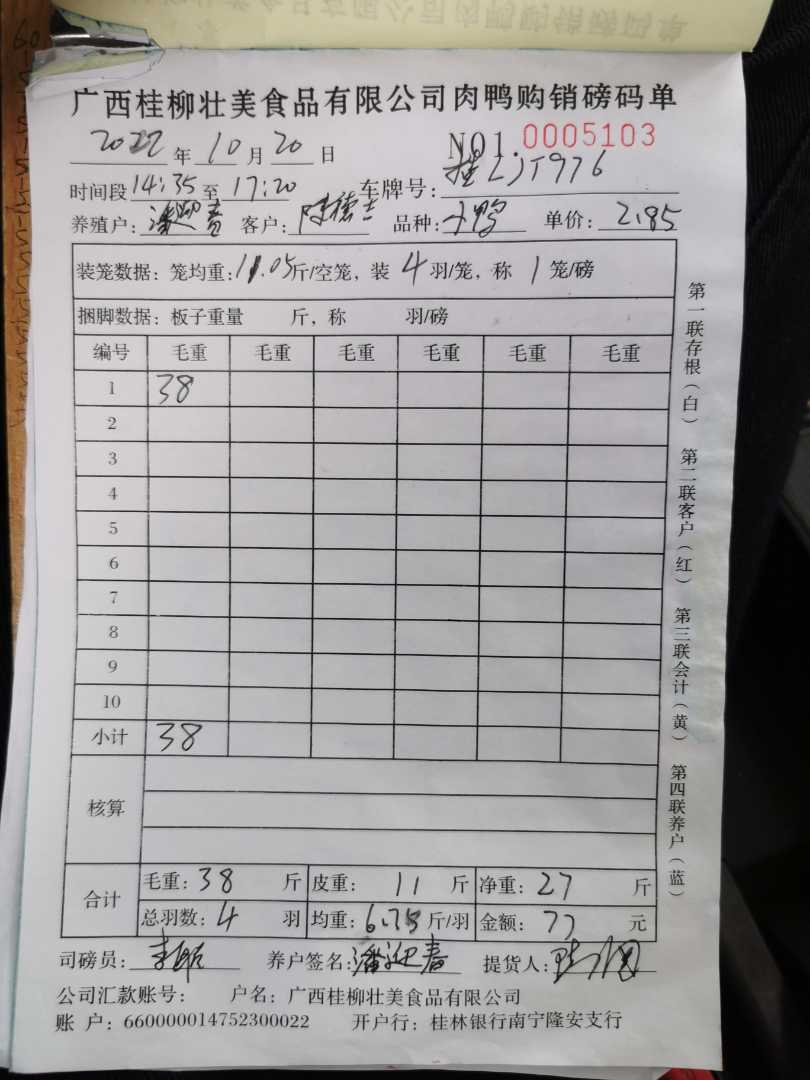 广西桂柳壮美食品有限公司肉鸭购销磅码单
2022 年 10 月 20 日 NO1. 0005103
时间段 14:35 至 17:20 车牌号: 桂LJT976
养殖户: 潘迎春 客户: 陈德士 品种: 小鸭 单价: 2.85
装笼数据: 笼均重: 11.05斤/空笼, 装 4 羽/笼, 称 1 笼/磅
捆脚数据: 板子重量 斤, 称 羽/磅
编号 毛重 毛重 毛重 毛重 毛重 毛重
1 38
2
3
4
5
6
7
8
9
10
小计 38
核算
合计 毛重: 38 斤 皮重: 11 斤 净重: 27 斤
总羽数: 4 羽 均重: 6.75 斤/羽 金额: 77 元
司磅员: 养户签名: 潘迎春 提货人:
公司汇款账号: 户名: 广西桂柳壮美食品有限公司
账 户: 660000014752300022 开户行: 桂林银行南宁隆安支行
第一联存根(白) 第二联客户(红) 第三联会计(黄) 第四联养户(蓝)